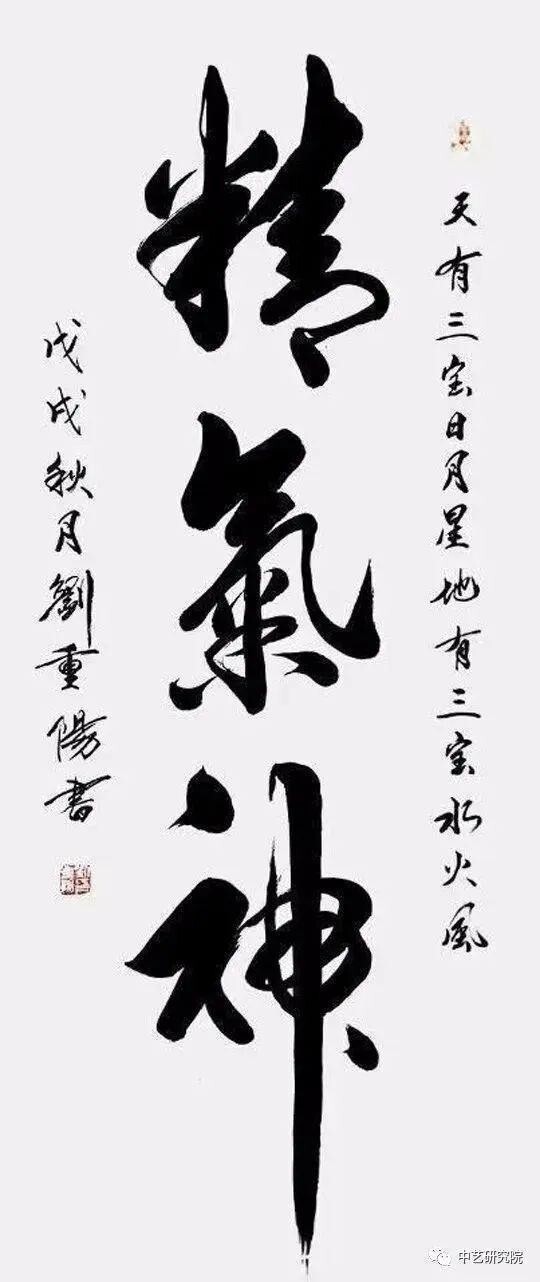 天有三宝日月星地有三宝水火風
精氣神
戊戌秋月劉重陽書
中艺研究院